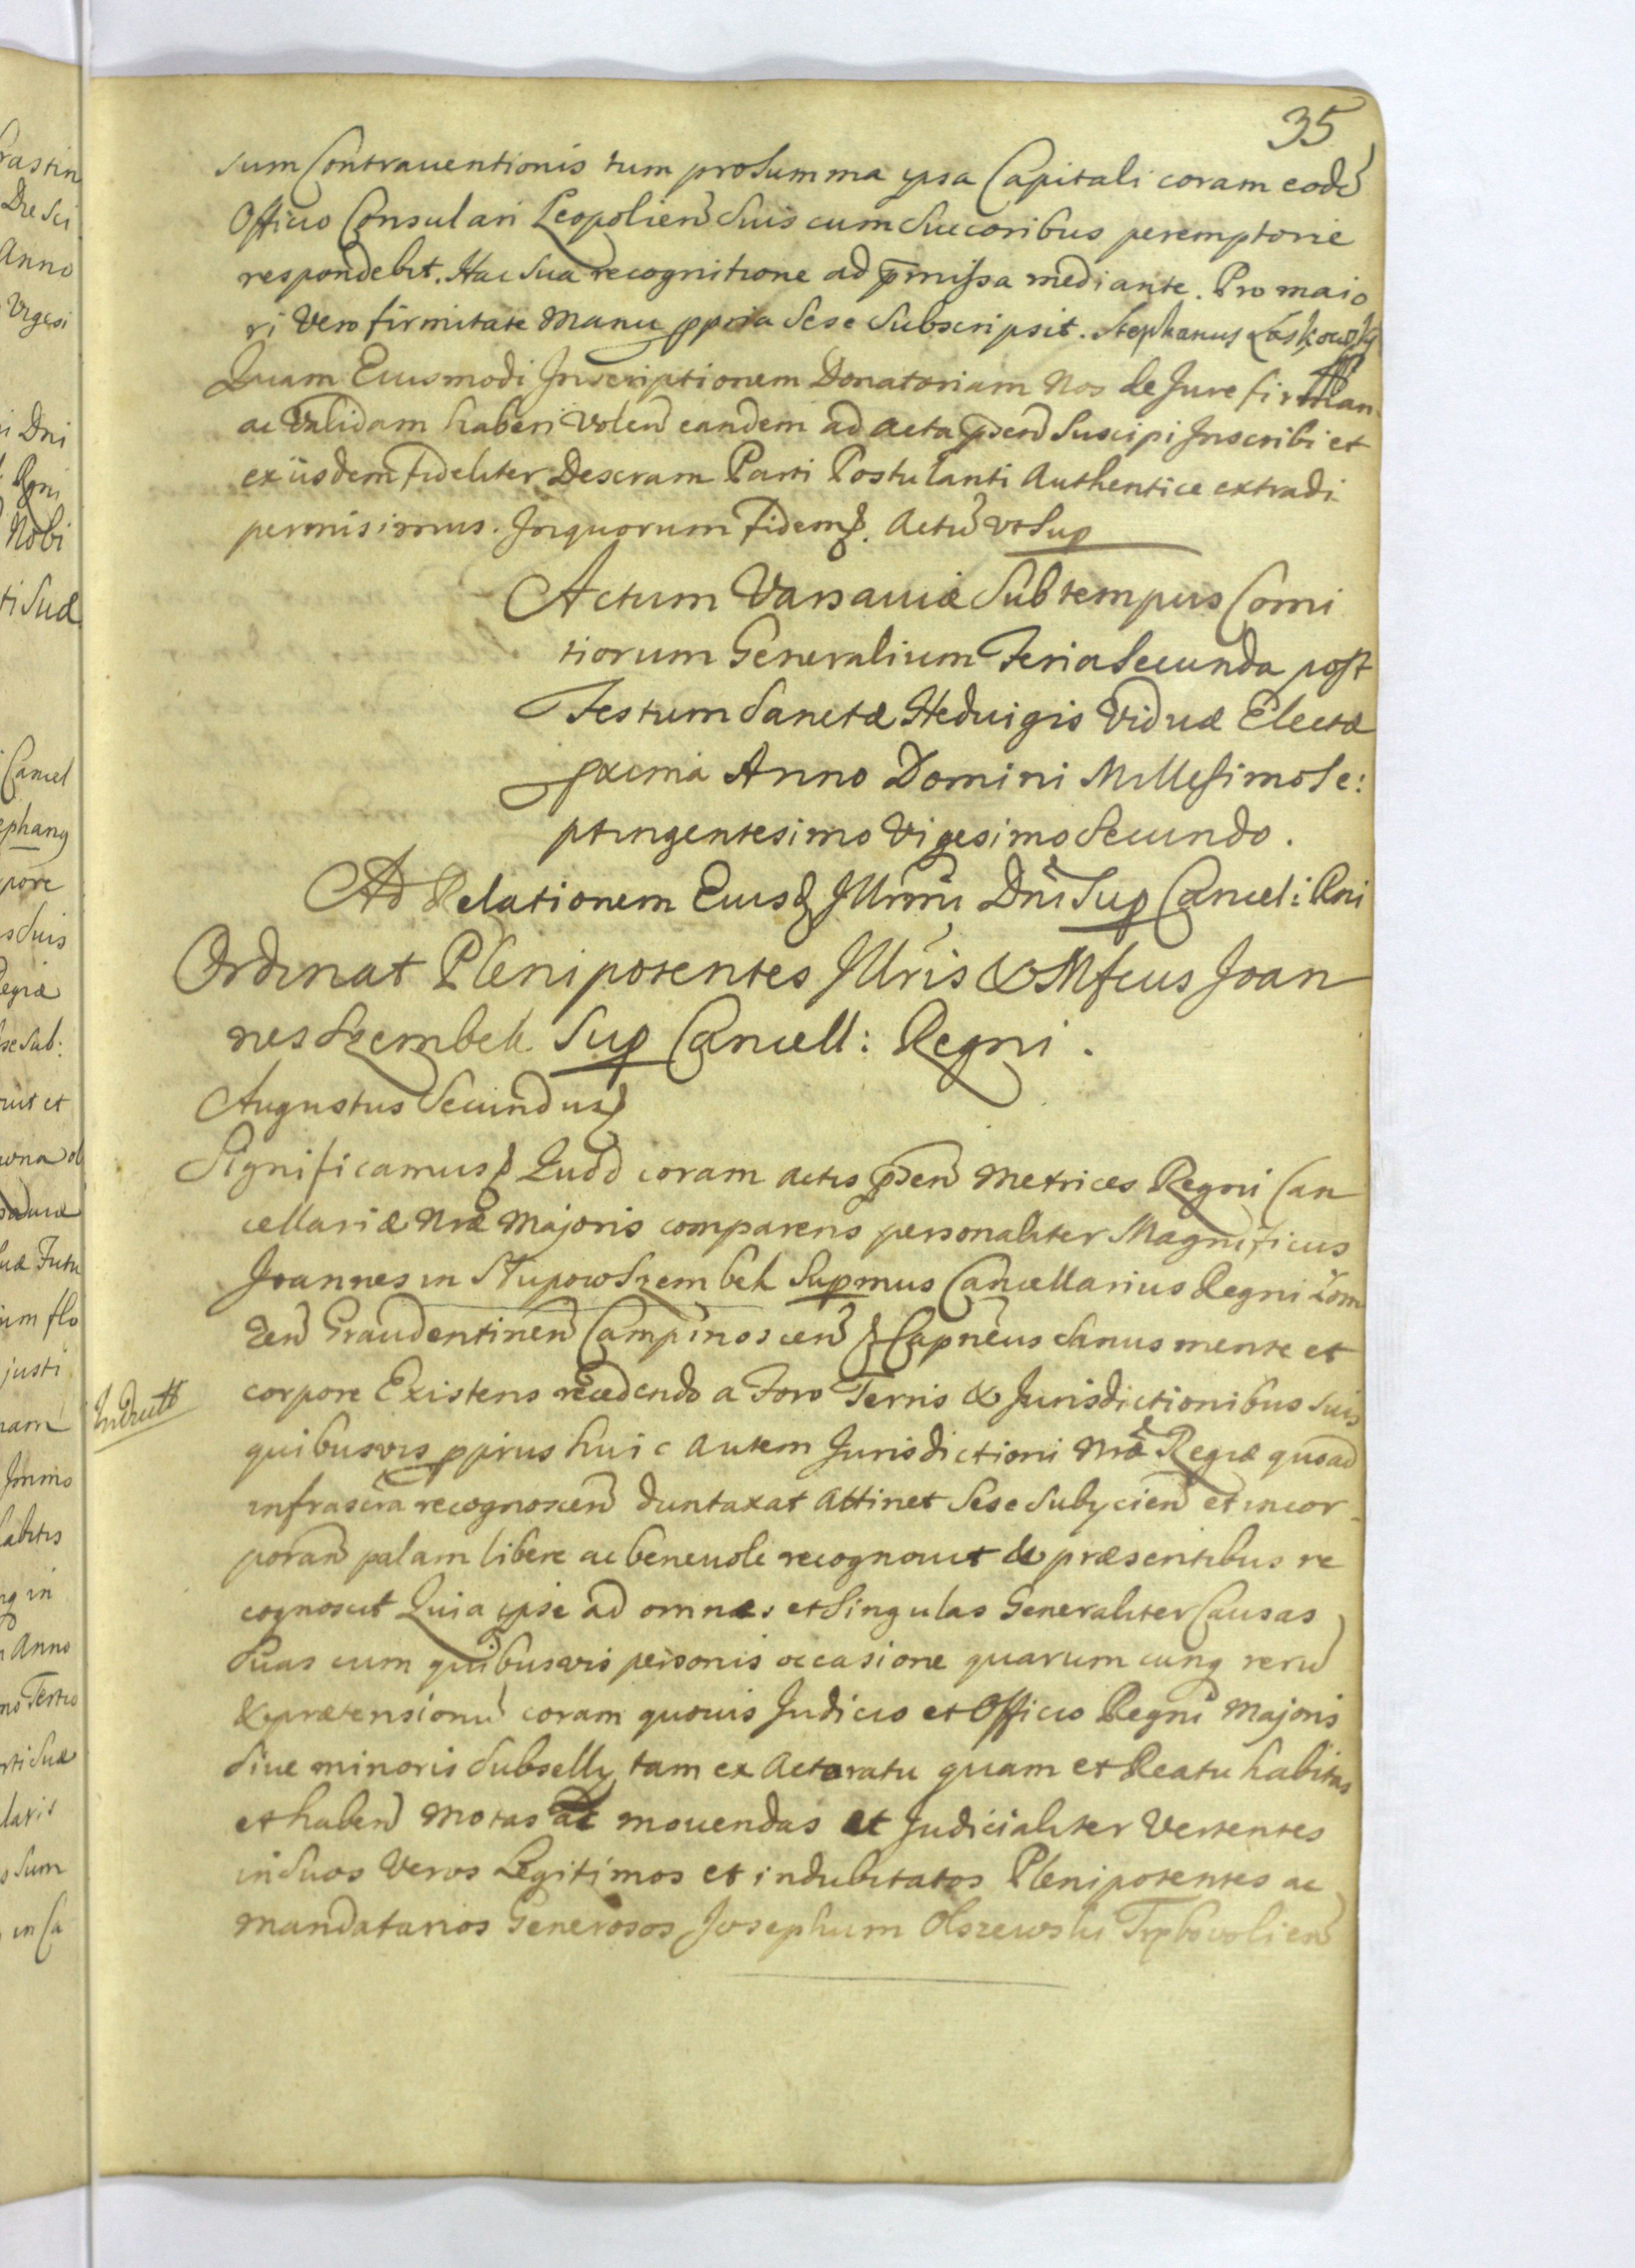 35
sum Contrauentionis tum pro Summa ipsa Capitali coram eodē
Officio Consulari Leopolien̄ Suis cum Succoribus peremptorie
respondebit. Hac Sua recognitione ad p̄missa mediante. Pro maio
ri Vero firmitate Manu ppria Sese Subscripsit. Stephanus Laskowsky
Quam Eiusmodi Inscriptionem Donatoriam Nos de Jure firmam
ac Validam haberi Volen̄ eandem ad Acta p̄sen̄ Suscipi Inscribi et
ex iisdem fideliter Descram Parti Postulanti Authentice extradi
permisimus. In quorum Fidem. Actū vt Sup
Actum Varsauiæ Sub tempus Comi
tiorum Generalium Feria Secunda post
Festum Sanctæ Heduigis Viduæ Electæ
pxima Anno Domini Millesimo Se:
ptingentesimo Vigesimo Secundo.
Ad Relationem Eiusd Illrmi Dni Sup Cancel: Rni
Ordinat Plenipotentes Illris & Mfcus Joan
nes Szembek Sup Cancell: Regni.
Augustus Secundus
Significamus Quod coram actis p̄sen̄ Metrices Regni Can
cellariæ Nræ Majoris comparens personaliter Magnificus
Joannes in Słupow Szembek Supmus Cancellarius Regni Łom
zen̄ Graudentinen̄ Campinoscen̄ Capneus Sanus mente et
corpore Existens recedendo a Foro Terris & Jurisdictionibus Suis
quibusvis pprius huic autem Jurisdictioni Nræ Regiæ quoad
infrascra recognoscen̄ duntaxat Attinet Sese Subycien̄ et incor
poran̄ palam libere ac beneuole recognouit & præsentibus re
cognoscit Quia ipse ad omnes et Singulas Generaliter Causas
Suas cum quibusvis personis occasione quarumcunq rerū
& prætensionū coram quovis Judicio et Officio Regni Majoris
Siue minoris Subselly tam ex Actoratu quam et Reatu habitas
et haben̄ motas ac mouendas et Judicialiter Vertentes
in Suos Veros Legitimos et indubitatos Plenipotentes ac
Mandatarios Generosos Josephum Olszewski Trybovolien̄